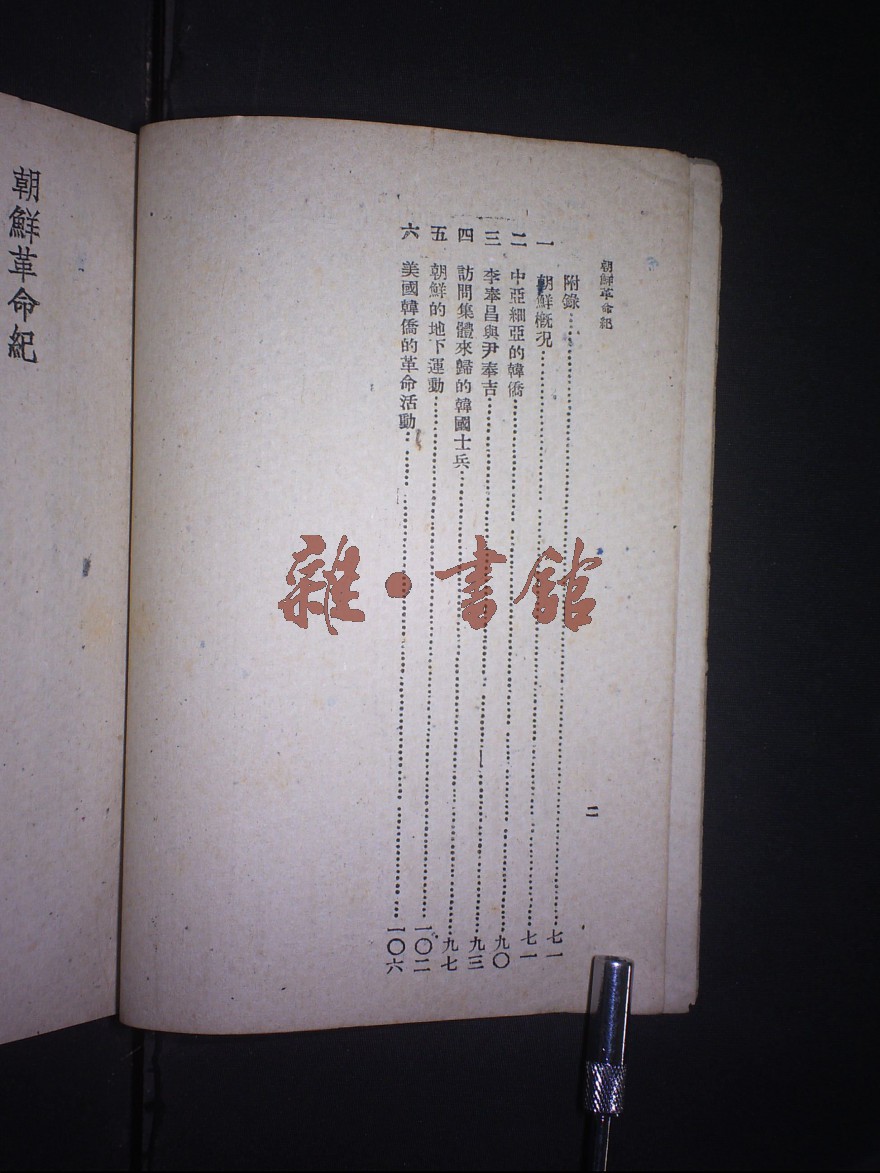 朝鮮革命紀
二
附錄……七一
一 朝鮮槪況……七一
二 中亞細亞的韓僑……九〇
三 李奉昌與尹奉吉……九三
四 訪問集體來歸的韓國士兵……九七
五 朝鮮的地下運動……一〇二
六 美國韓僑的革命活動……一〇六
朝鮮革命紀
雜·書館